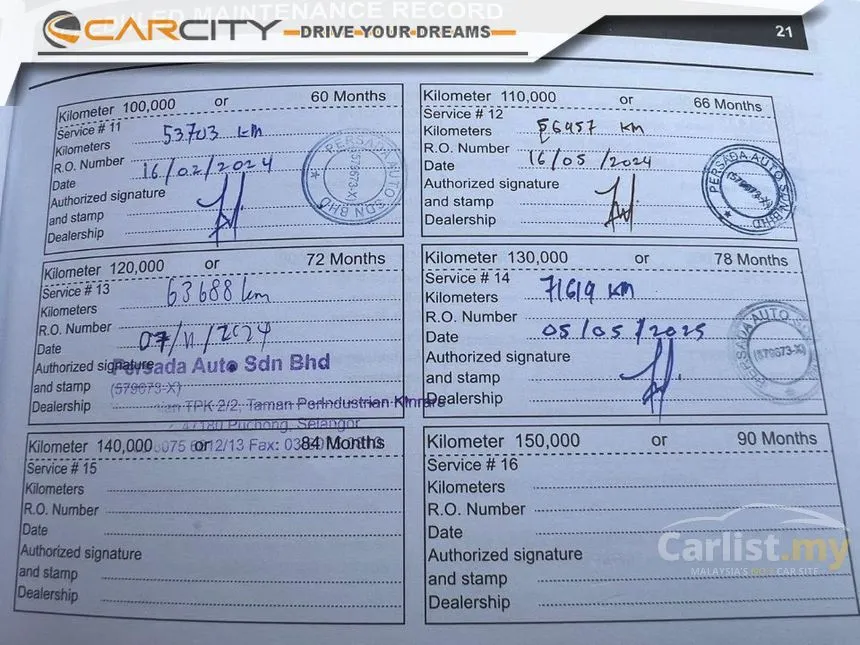 MAINTENANCE RECORD
CARCITY
DRIVE YOUR DREAMS
21
Kilometer 100,000 or 60 Months
Service # 11
Kilometers 53703 km
R.O. Number
Date 16/02/2024
Authorized signature
and stamp
Dealership
PERSADA AUTO SDN BHD
(579673-X)
Kilometer 110,000 or 66 Months
Service # 12
Kilometers 56957 KM
R.O. Number
Date 16/05/2024
Authorized signature
and stamp
Dealership
PERSADA AUTO SDN BHD
(579673-X)
Kilometer 120,000 or 72 Months
Service # 13
Kilometers 63688 km
R.O. Number
Date 07/11/2024
Authorized signature
and stamp
Dealership
Persada Auto Sdn Bhd
(579673-X)
TPK 2/2, Taman Perindustrian Kinrara
47180 Puchong, Selangor
Fax:
Kilometer 130,000 or 78 Months
Service # 14
Kilometers 71619 KM
R.O. Number
Date 05/05/2025
Authorized signature
and stamp
Dealership
PERSADA AUTO
(579673-X)
Kilometer 140,000 or 84 Months
Service # 15
Kilometers
R.O. Number
Date
Authorized signature
and stamp
Dealership
Kilometer 150,000 or 90 Months
Service # 16
Kilometers
R.O. Number
Date
Authorized signature
and stamp
Dealership
Carlist.my
MALAYSIA'S NO.1 CAR SITE